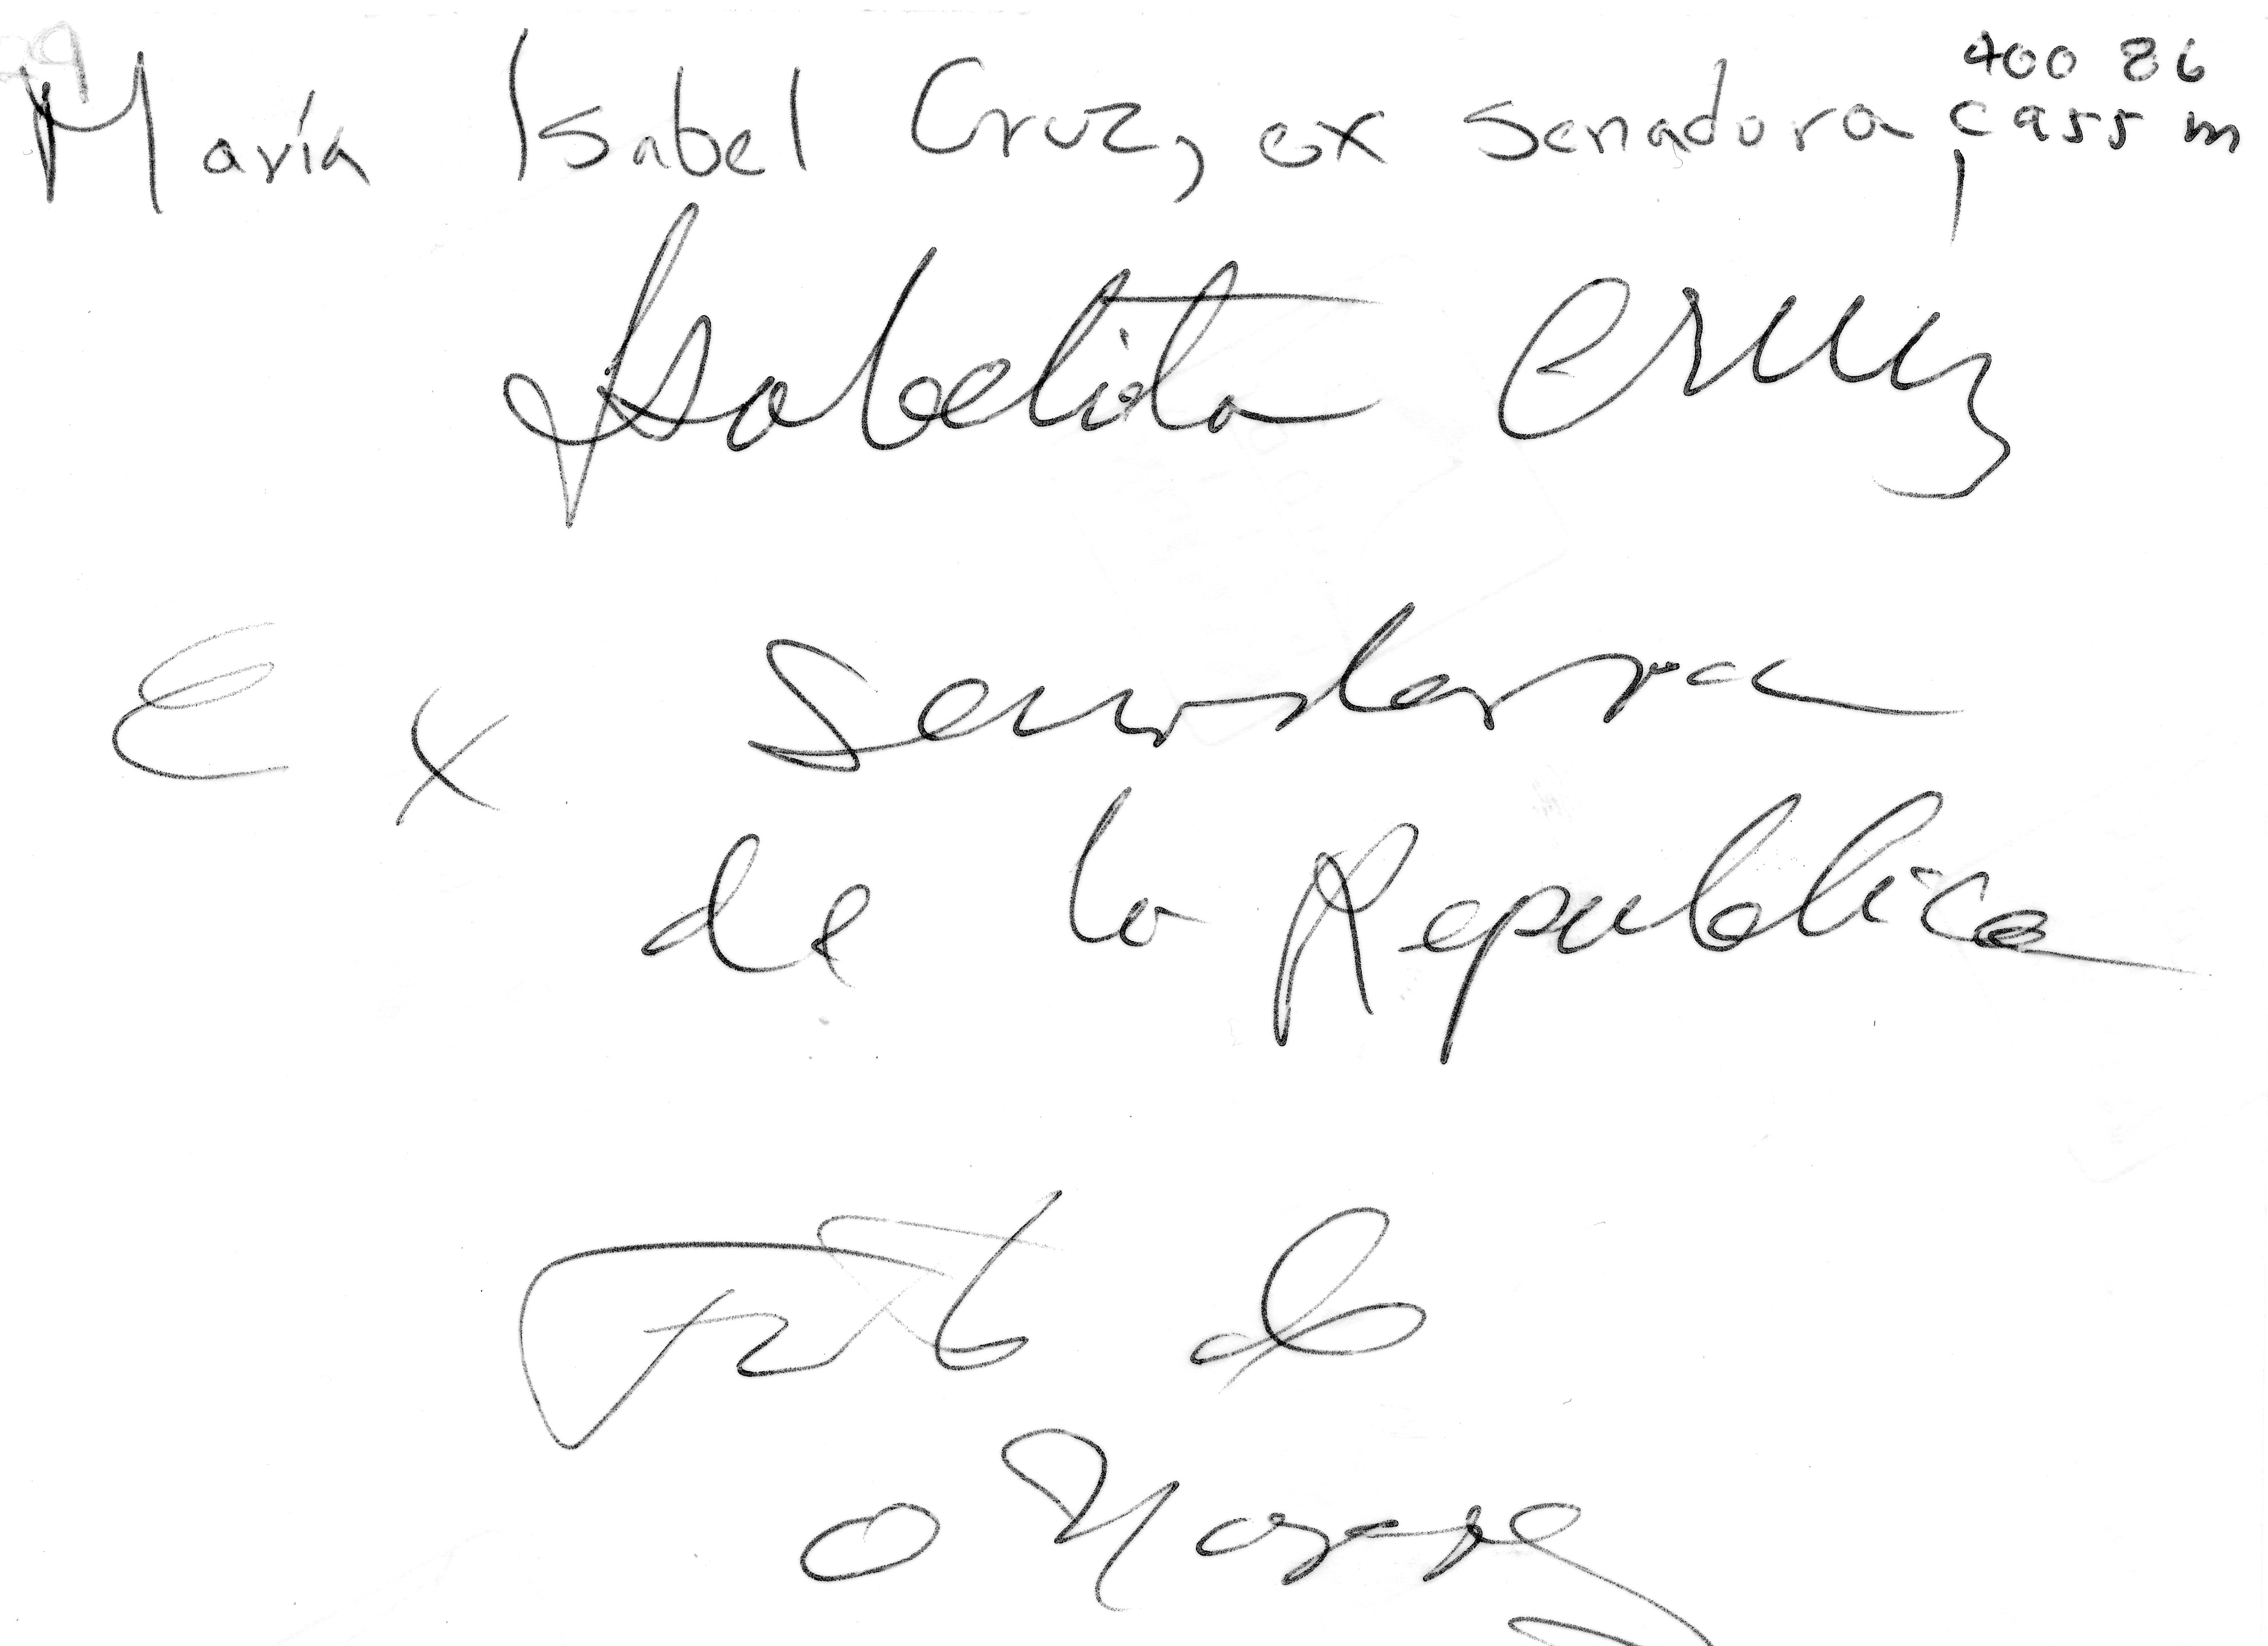 400 86
María Isabel Cruz, ex senadora, c 955 m
Isabelita Cruz
Ex Senadora
de la Republica
de